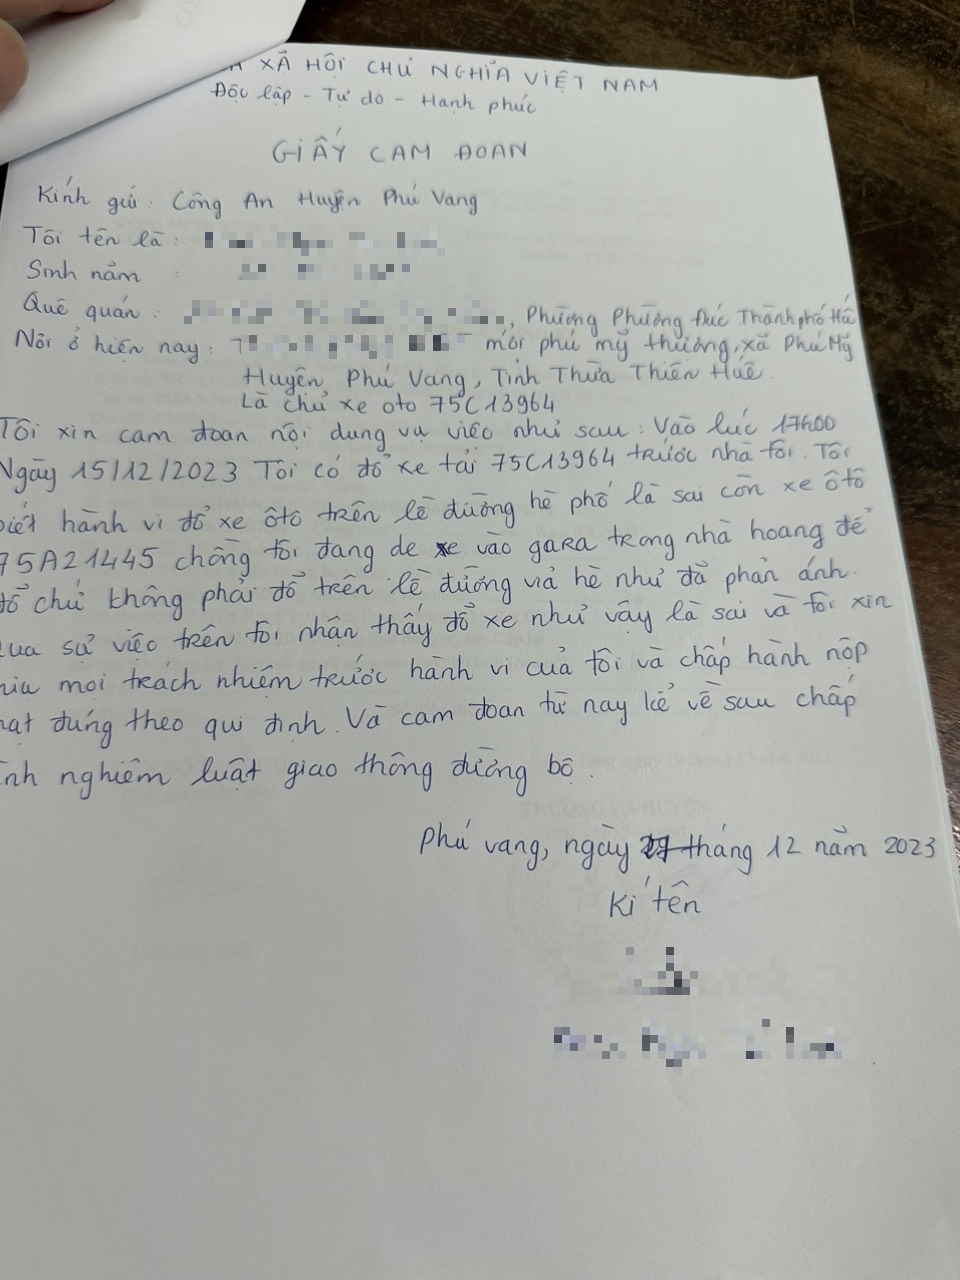 XÃ HỘI CHỦ NGHĨA VIỆT NAM
Độc lập - Tự do - Hạnh phúc
GIẤY CAM ĐOAN
Kính gửi: Công An Huyện Phú Vang
Tôi tên là:
Sinh năm :
Quê quán : , Phường Phường Đúc Thành phố
Nơi ở hiện nay: mới phú mỹ thượng, xã Phú Mỹ
Huyện Phú Vang, Tỉnh Thừa Thiên Huế.
Là chủ xe oto 75C13964
Tôi xin cam đoan nội dung vụ việc như sau: Vào lúc 17h00
Ngày 15/12/2023 Tôi có đổ xe tải 75C13964 trước nhà tôi. Tôi
biết hành vi đổ xe ôtô trên lề đường hè phố là sai còn xe ôtô
75A21445 chồng tôi đang de xe vào gara trong nhà hoang để
đổ chứ không phải đổ trên lề đường vỉa hè như đã phản ánh.
qua sự việc trên tôi nhận thấy đổ xe như vậy là sai và tôi xin
chịu mọi trách nhiệm trước hành vi của tôi và chấp hành nộp
phạt đúng theo qui định. Và cam đoan từ nay kể về sau chấp
hành nghiêm luật giao thông đường bộ.
Phú vang, ngày tháng 12 năm 2023
Kí tên